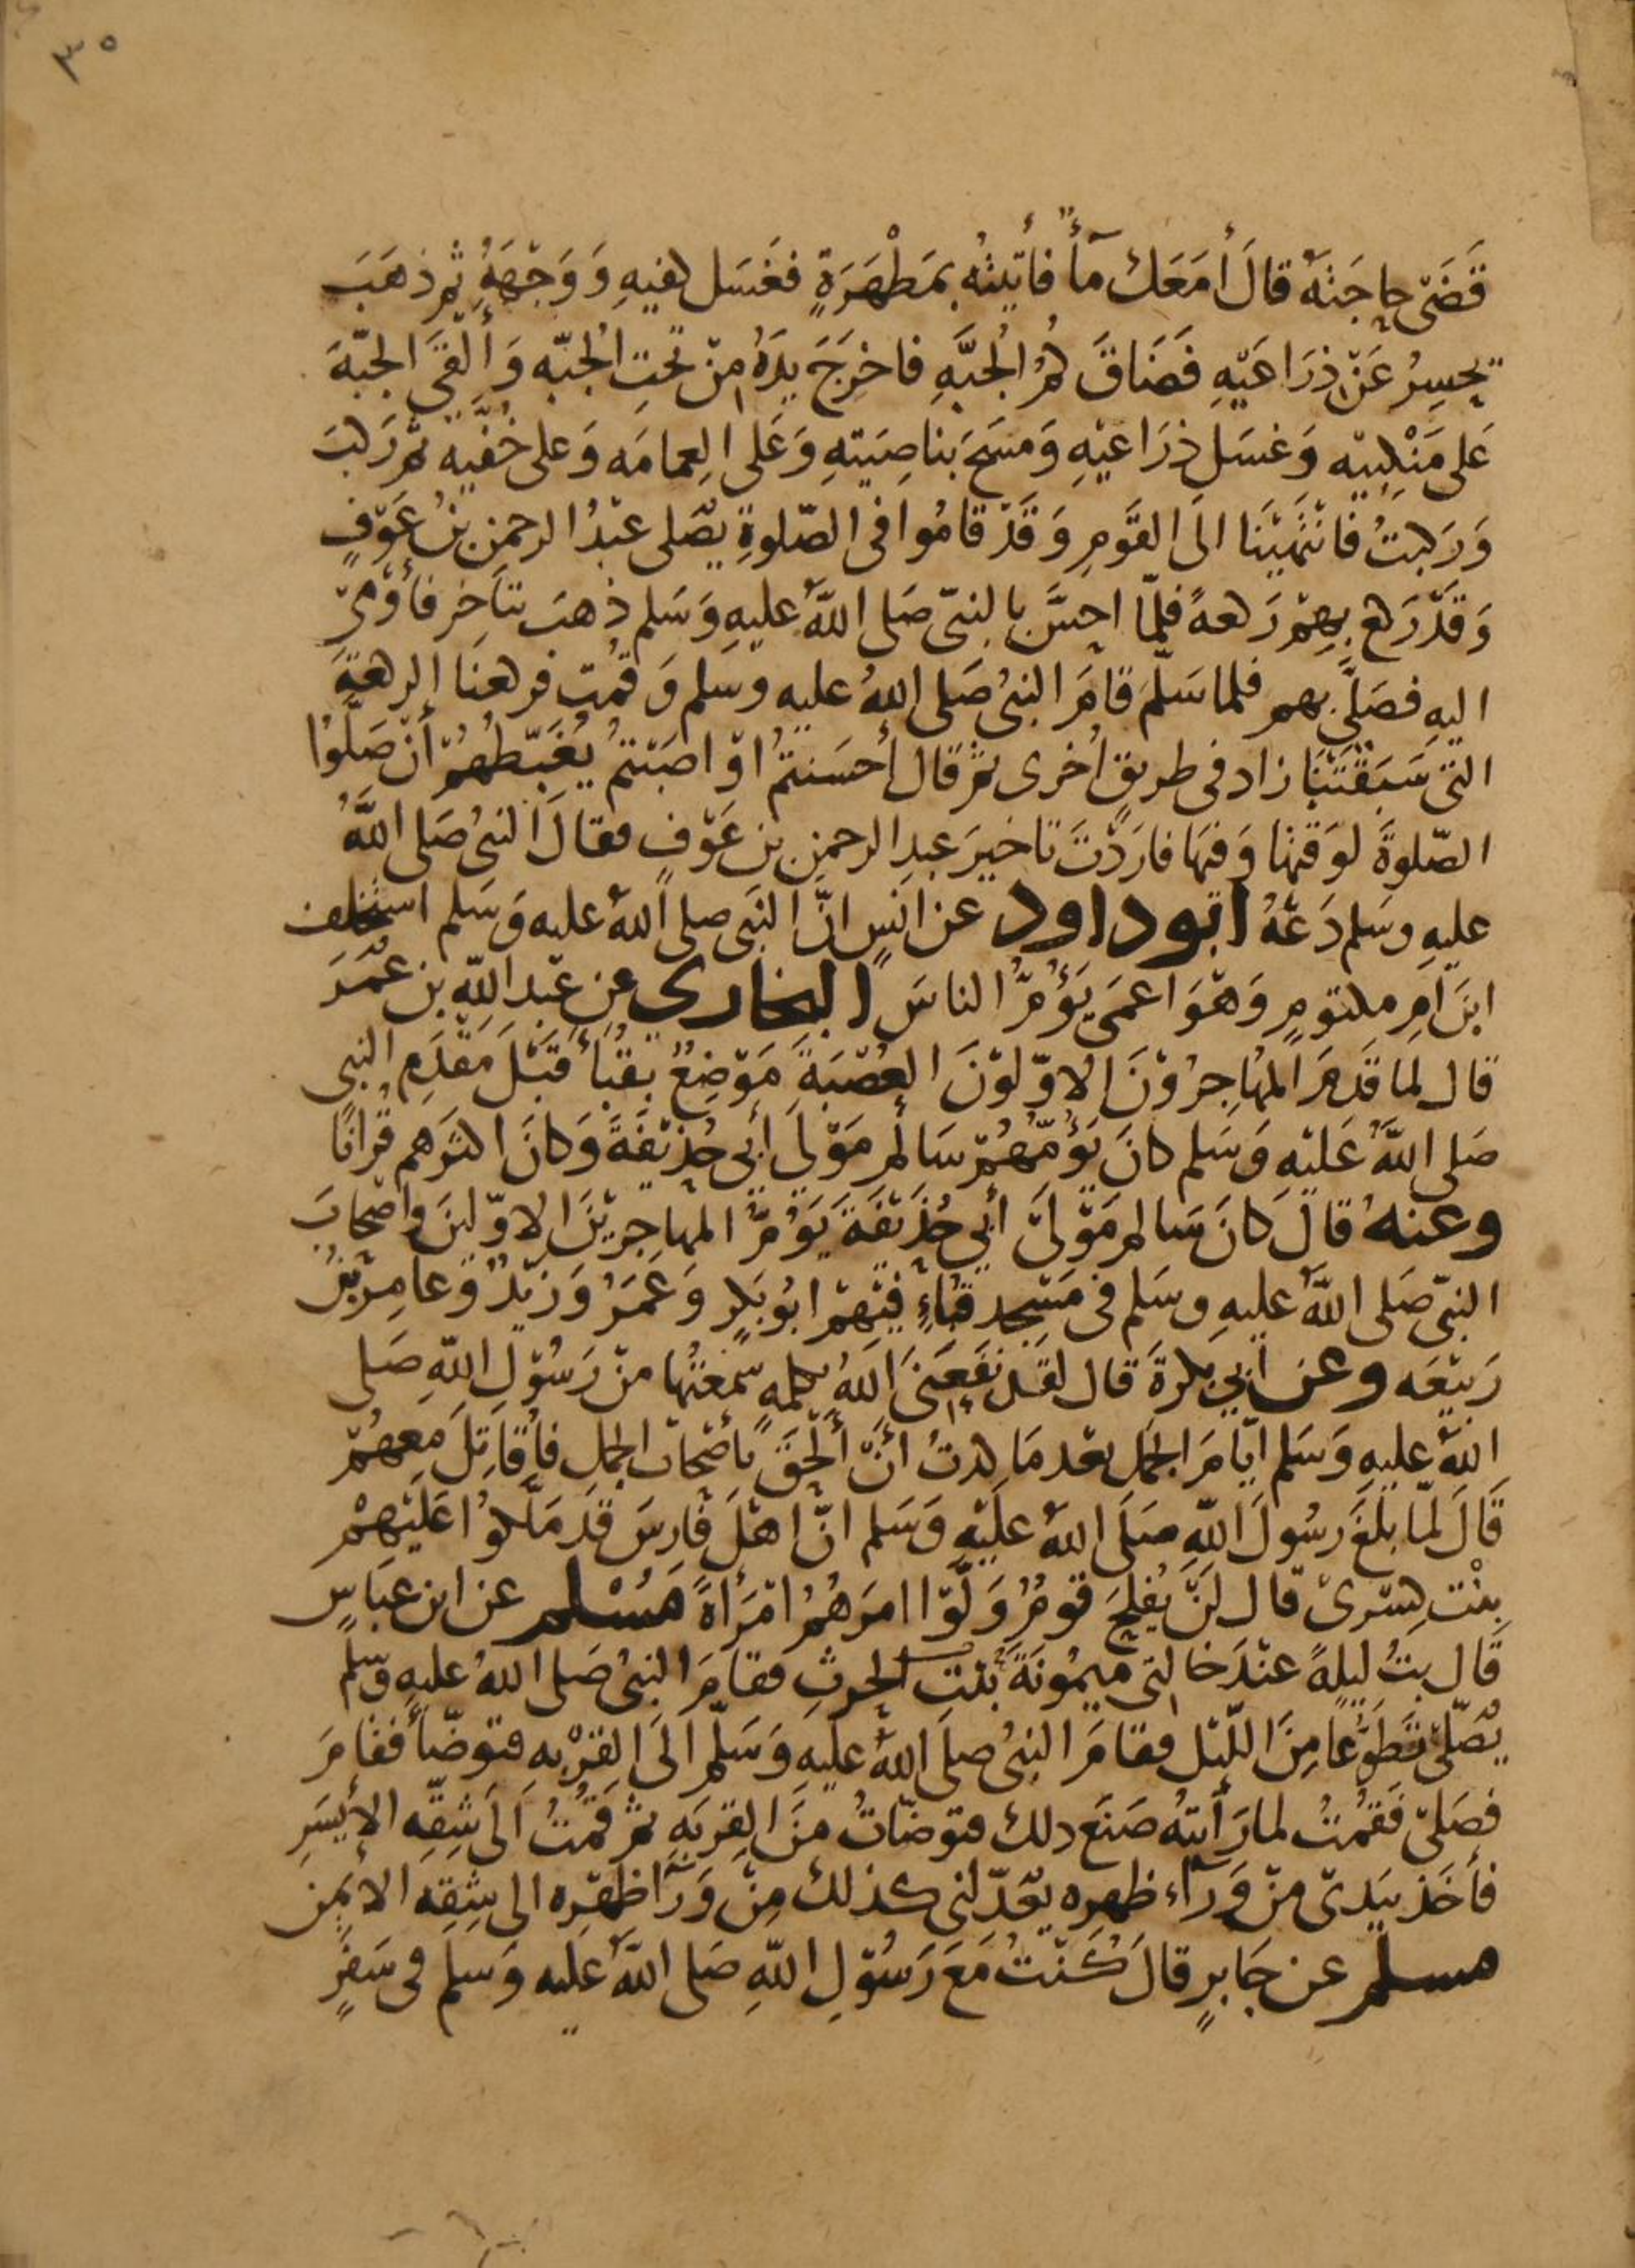 ٣٥
قَضَى حاجَتَهُ قالَ أمَعَكَ مآءٌ فأتَيْتُهُ بمَطْهَرَةٍ فغَسَل كفيهِ وَوَجْهَهُ ثم ذهَبَ
يحسِرُ عَنْ ذرَاعَيْهِ فَضَاقَ كُمُّ الجُبَّهِ فاخرَجَ يدَهُ مِنْ تحتِ الجُبّه وَألْقَى الجبّةَ
عَلى مَنْكِبَيه وَغسَل ذرَاعَيْهِ وَمسَحَ بناصِيَتهِ وَعَلى العِمامَه وَعلى خُفَّيْه ثم رَكبَ
وَرَكبتُ فانْتَهَيْنَا الىَ القَوْمِ وَقَدْ قامُوا في الصّلوةِ يُصَلى عبْدُ الرحمن بنُ عَوْفٍ
وَقَدْ رَكع بهِمْ رَكعةً فلمّا احسَّ بالنبىّ صَلى اللهُ عليهِ وَسَلم ذهبَ يتَأخر فأوْمَىْ
اليهِ فصَلَّى بهم فلما سَلّمَ قامَ النبىُ صَلى اللهُ عليه وسَلم وَقمُت فركعنَا الركعَةَ
التى سَبَقتْنَا زاد في طريقٍ أخرى ثم قال أحسَنتمُ اوْ اصَبْتمُ يُغَبّطُهمْ أنْ صَلّوْا
الصّلوةَ لوَقتها وَفيهَا فارَدْتُ تاخيرَ عبدِ الرحمن بن عَوْفٍ فقالَ النبىُ صَلى اللهُ
عليهِ وسَلم دَعْهُ ابو داود عن انَسٍ انّ النبَى صلى اللهُ عليه وَسَلم استخلف
ابنَ امِ مكتومٍ وَهْوَ اعمَى يَؤُمُّ الناسَ البخارى عن عَبْد اللهِ بن عُمَرَ
قال لما قَدمَ المُهاجرُوْنَ الاوّلوْنَ العُصْبَةَ مَوْضِعٌ بقُبَاءَ قَبْلَ مَقْدَمِ النبى
صَلى اللهُ عَليْهِ وَسَلم كانَ يَؤُمّهُمْ سَالم مَوْلىَ أبي حُذيْفَةَ وَكانَ اكثرَهم قُرانًا
وعنهُ قالَ كانَ سَالم مَوْلىَ أبي حُذيْفَةَ يَؤُمُّ المهاجريْنَ الاوّلينَ واصْحابَ
النبىّ صَلى اللهُ عليهِ وسَلم فى مَسْجد قُبَاءٍ فيْهمْ ابُو بَكرٍ وَعُمَرُ وَزيْدٌ وَعامر بْنُ
رَبيْعَه وعن أبي بكرةَ قال لقد نَفَعَنىَ اللهُ بكلمهٍ سمعْتُها منْ رَسُوْلِ اللهِ صَلى
اللهُ عليهِ وَسَلم ايّامَ الجمَل بعْد مَا كدتُ انّ ألحَقَ بأصْحاب الجمل فأقَاتِلَ مَعهُمْ
قَالَ لمّا بلَغَ رسُولَ اللهِ صلىَ اللهُ عليْهِ وَسَلم انّ اهْلَ فارسَ قَد مَلّكوُا عَليْهمْ
بنْت كِسْرىْ قال لنْ يُفلحَ قومٌ وَلّوْا امرَهُمُ امْرَاةً مُسْلم عن ابن عبَاسٍ
قَال بتُ ليلهً عنْدَ خالتى ميمُونَةَ بنْت الحرثِ فقامَ النبىُ صَلى اللهُ عليهِ وَسَلم
يُصَلّى تَطوّعًا مِنَ اللّيْل فقامَ النبىُ صلىَ اللهُ عليَهِ وَسَلّم الىَ القِرْبه فتوضّأ فقامَ
فصَلىّ فَقمْتُ لما رَأيتهُ صَنَعَ دلك فتوضّأتُ منَ القِربَهِ ثم قمْتُ الىَ شِقّهِ الأيسَرِ
فأخَذ بيَدىْ منْ وَرَآءِ ظهره يَعْدِلنى كذلك مِنْ وَرَآ ظهْره الى شِقهِ الايمن
مسلم عن جَابرٍ قالَ كُنْتُ مَعَ رَسُوْلِ اللهِ صَلى اللهُ عَليه وَسَلم فى سَفرٍ